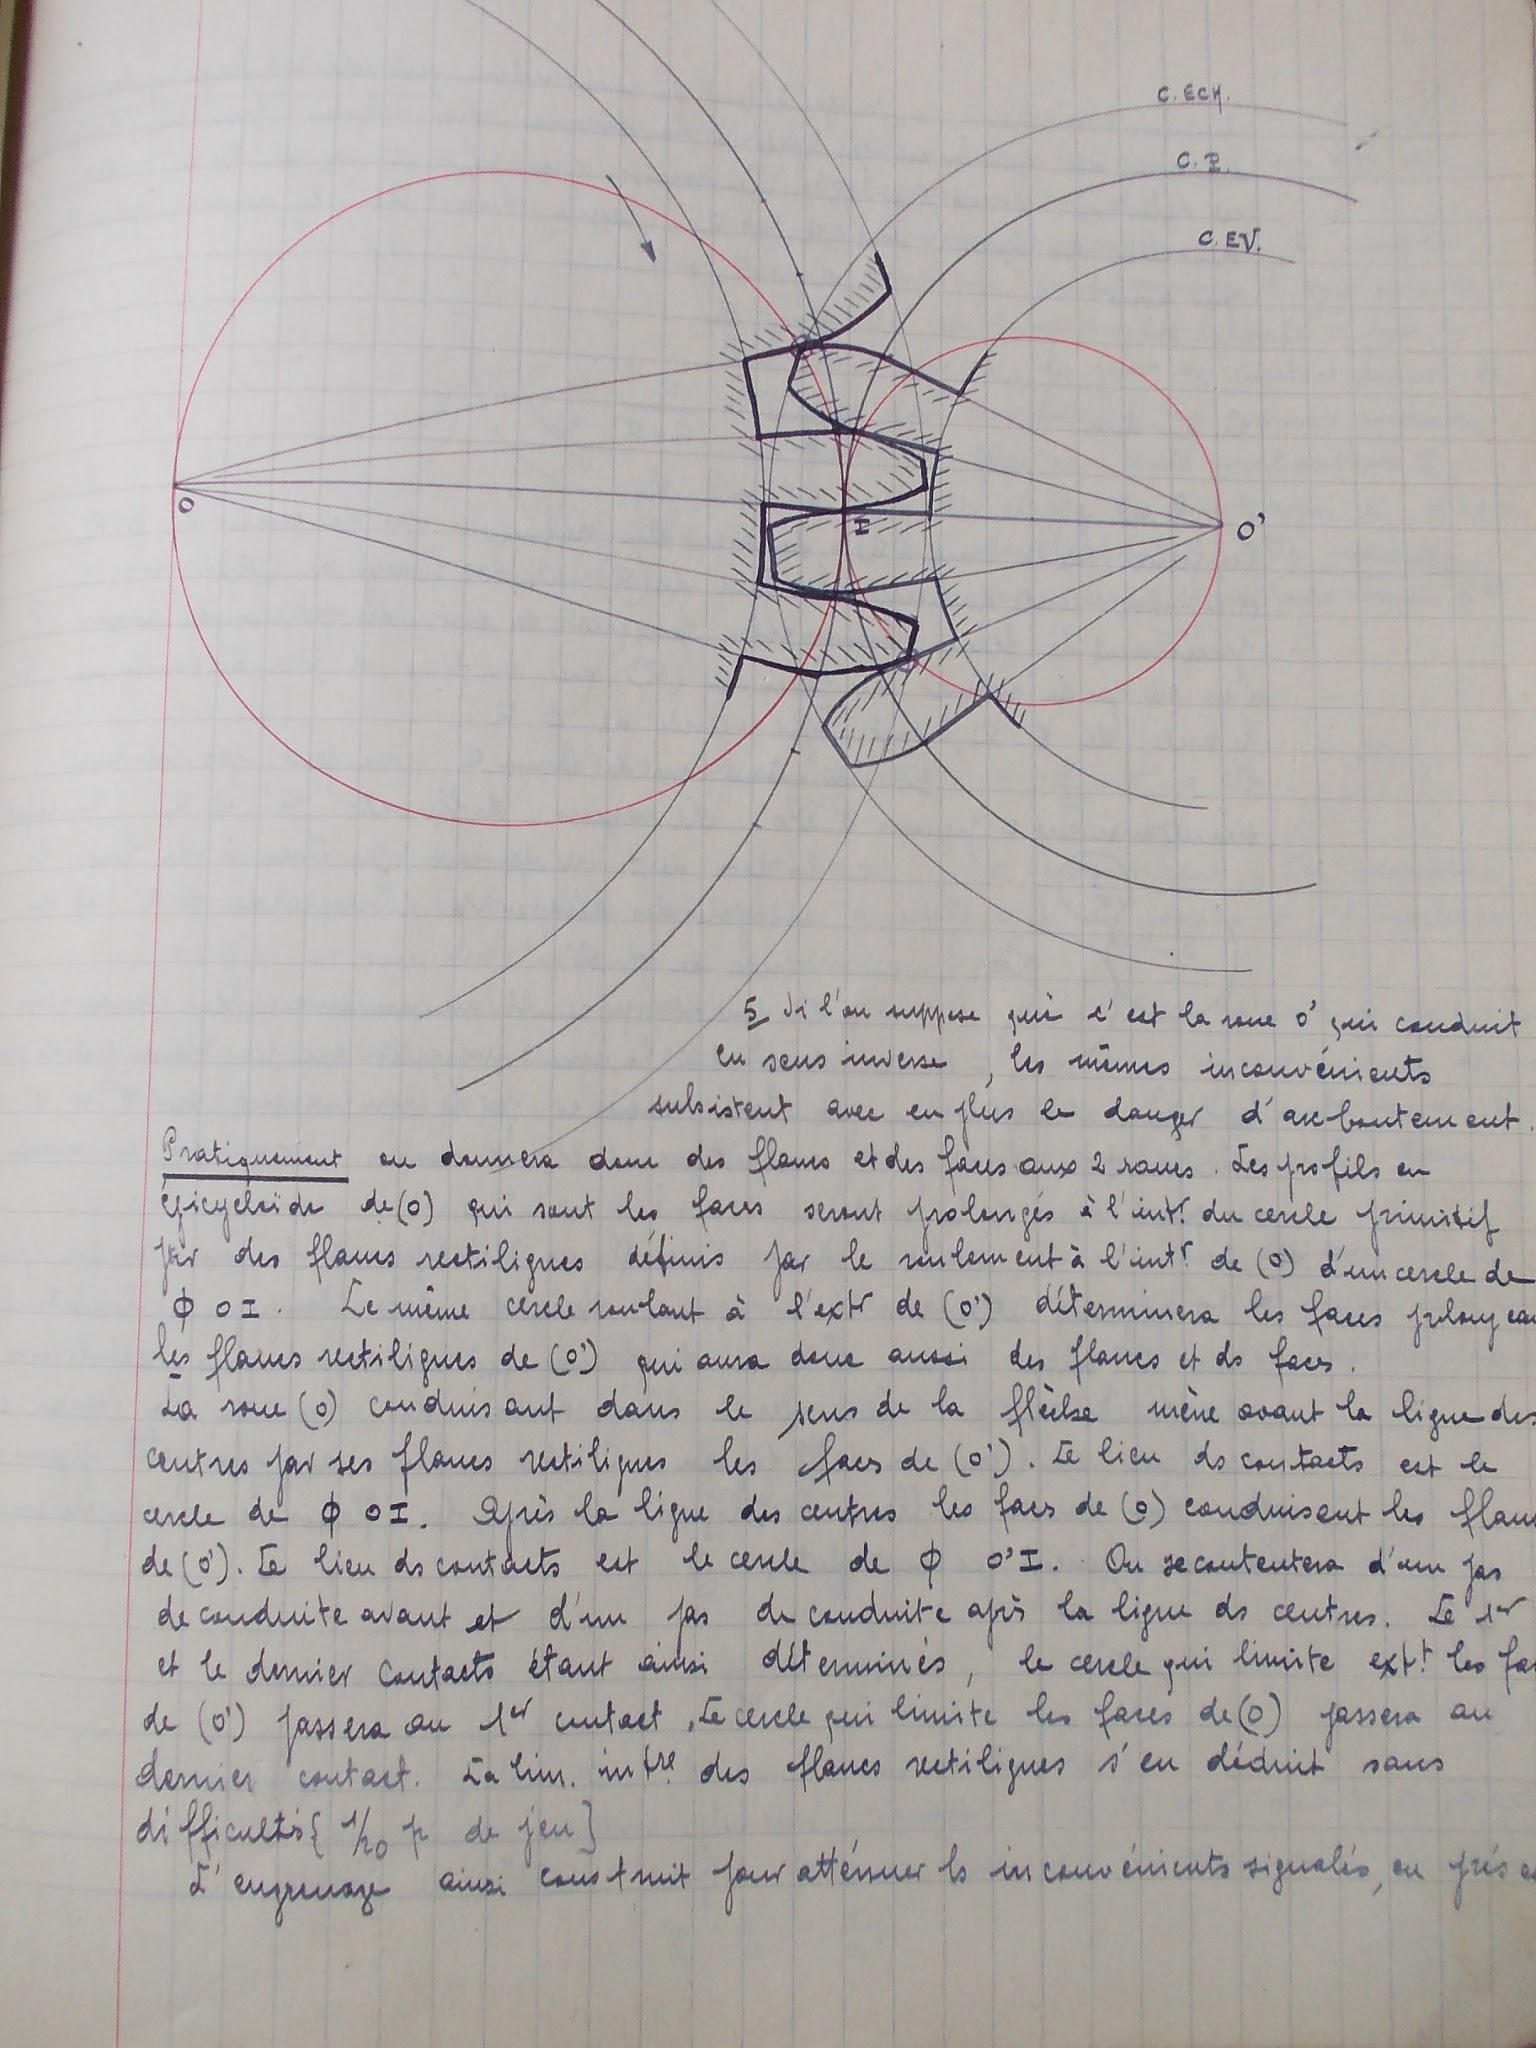 C. ECH.
C. P.
C. EV.
O
I
O'
5 Si l'on suppose que c'est la roue O' qui conduit
en sens inverse, les mêmes inconvénients
subsistent avec en plus le danger d'arc-boutement.
Pratiquement on donnera donc des flancs et des faces aux 2 roues. Les profils en
épicycloïde de (O) qui sont les faces seront prolongés à l'intr. du cercle primitif
par des flancs rectilignes définis par le roulement à l'intr de (O) d'un cercle de
ϕ OI. Le même cercle roulant à l'extr de (O') déterminera les faces
les flancs rectilignes de (O') qui aura donc aussi des flancs et ds faces.
La roue (O) conduisant dans le sens de la flèche mène avant la ligne des
centres par ses flancs rectilignes les faces de (O'). Le lieu ds contacts est le
cercle de ϕ OI. Après la ligne des centres les faces de (O) conduisent les
de (O'). Le lieu ds contacts est le cercle de ϕ O'I. On se contentera d'un pas
de conduite avant et d'un pas de conduite après la ligne ds centres. Le 1er
et le dernier contacts étant ainsi déterminés, le cercle qui limite extt les
de (O') passera au 1er contact. Le cercle qui limite les faces de (O) passera au
dernier contact. La lim. intre des flancs rectilignes s'en déduit sans
difficultés [1/20 p de jeu]
L'engrenage ainsi construit pour atténuer ls inconvénients signalés, en